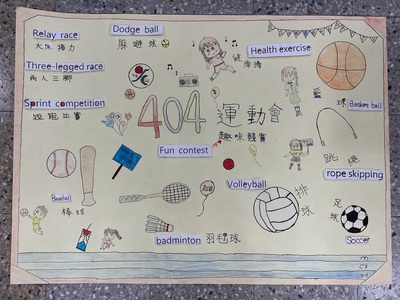 Relay race
大隊接力
Dodge ball
躲避球
Health exercise
健康操
Three-legged race
兩人三腳
Sprint competition
短跑比賽
404
運動會
趣味競賽
Fun contest
球 Basketball
跳繩
rope skipping
Baseball
棒球
Volleyball
排球
足球
Soccer
badminton 羽毛球
1 2 3